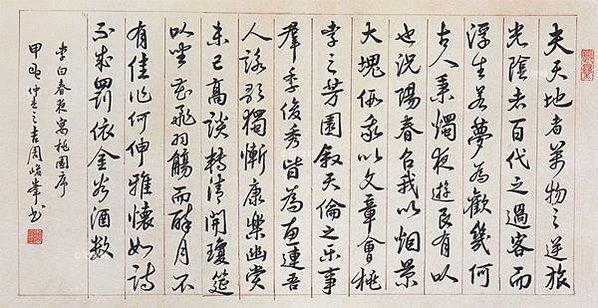 夫天地者萬物之逆旅
光陰者百代之過客而
浮生若夢為歡幾何
古人秉燭夜遊良有以
也況陽春召我以烟景
大塊假我以文章會桃
李之芳園叙天倫之乐事
羣季俊秀皆為惠連吾
人詠歌獨慚康樂幽賞
未已高談轉清開瓊筵
以坐花飛羽觴而醉月不
有佳作何伸雅懷如詩
不成罰依金谷酒數
李白春夜宴桃園序
甲仲春之吉周峻峯书